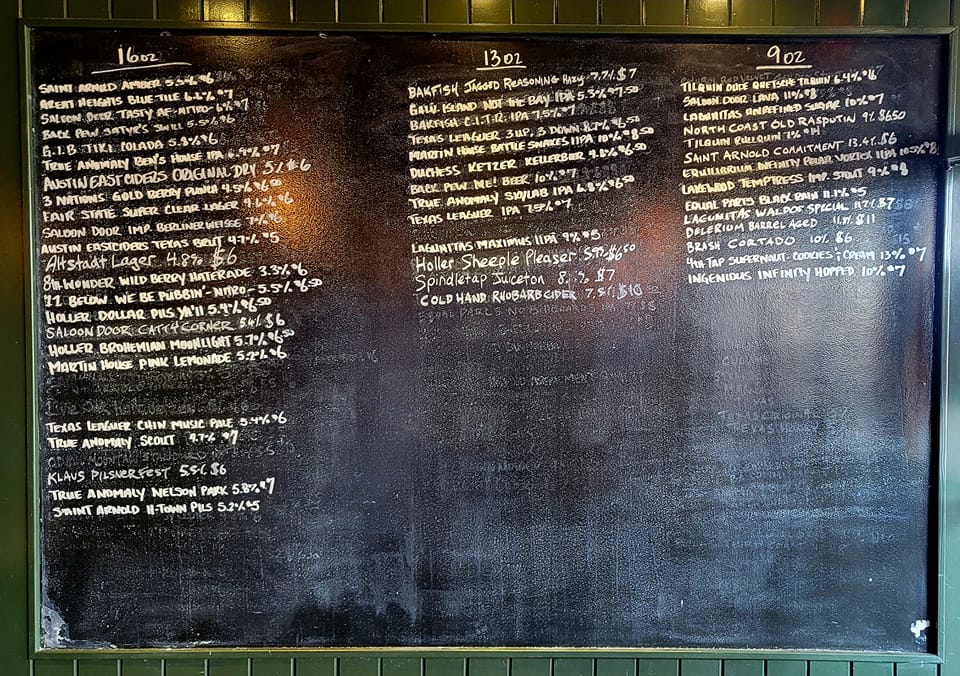 16oz
SAINT ARNOLD AMBER 5.5% $6
AZENT HEIGHTS BLUE TILE 6.2% $7
SALOON DOOR TASTY AF -NITRO- 6% $7
BACK PEW SATYR'S 5.5% $6
G.I.B. TIKI COLADA 5.8% $6
TRUE ANOMALY BEN'S HOUSE IPA 6.9% $7
AUSTIN EASTCIDERS ORIGINAL DRY 5% $6
3 NATIONS GOLD BERRY PUNCH 4.5% $6.50
FAIR STATE SUPER CLEAR LAGER 4.6% $6.50
SALOON DOOR IMP. BERLINERWEISSE 7% $6
AUSTIN EASTCIDERS TEXAS BRUT 4.7% $5
Altstadt Lager 4.8% $6
8TH WONDER WILD BERRY HATERADE 3.3% $6
11 BELOW WE BE PUBBIN' -NITRO- 5.5% $6.50
HOLLER DOLLAR PILS YA'LL 5.4% $6.50
SALOON DOOR CATTY CORNER 5.4% $6
HOLLER BROHEMIAN MOONLIGHT 5.7% $6.50
MARTIN HOUSE PINK LEMONADE 5.2% $6
TEXAS LEAGUER CHIN MUSIC PALE 5.4% $6
TRUE ANOMALY SCOUT 4.7% $7
KLAUS PILSNERFEST 5.5% $6
TRUE ANOMALY NELSON PARK 5.8% $7
SAINT ARNOLD H-TOWN PILS 5.2% $5
13oz
BAKFISH JAGGED REASONING HAZY 7.7% $7
GALV. ISLAND NOT THE BAY IPA 5.3% $7.50
BAKFISH C.I.T.R. IPA 7.5% $7
TEXAS LEAGUER 3 UP, 3 DOWN 8.7% $6.50
MARTIN HOUSE BATTLE SNAKES IIPA 10% $8.50
DUCHESS KETZER KELLERBIER 4.8% $6.50
BACK PEW ME! BEER 10% $7
TRUE ANOMALY SKYLAB IPA 6.8% $6.50
TEXAS LEAGUER IPA 7.5% $7
LAGUNITAS MAXIMUS IIPA 9% $5
Holler Sheeple Pleaser 5.9% $6.50
Spindletap Juiceton 8. % $7
COLD HAND RHUBARB CIDER 7.5% $10
9oz
TILQUIN OUDE QUETSCHE TILQUIN 6.4% $16
SALOON DOOR LAVA 11% $8
LAGUNITAS UNREFINED SUGAR 10% $7
NORTH COAST OLD RASPUTIN 9% $6.50
TILQUIN RULLQUIN 7% $14
SAINT ARNOLD COMMITMENT 13.4% $6
EQUILIBRIUM INFINITY POLAR VORTEX IIPA 10.5% $8
LAKEWOOD TEMPTRESS IMP. STOUT 9% $8
EQUAL PARTS BLACK RAIN 11.1% $5
LAGUNITAS WALDOS' SPECIAL 11.7% $7
DELERIUM BARREL AGED 11.5% $11
BRASH CORTADO 10% $6
4TH TAP SUPERNAUT- COOKIES & CREAM 13% $7
INGENIOUS INFINITY HOPPED 10% $7